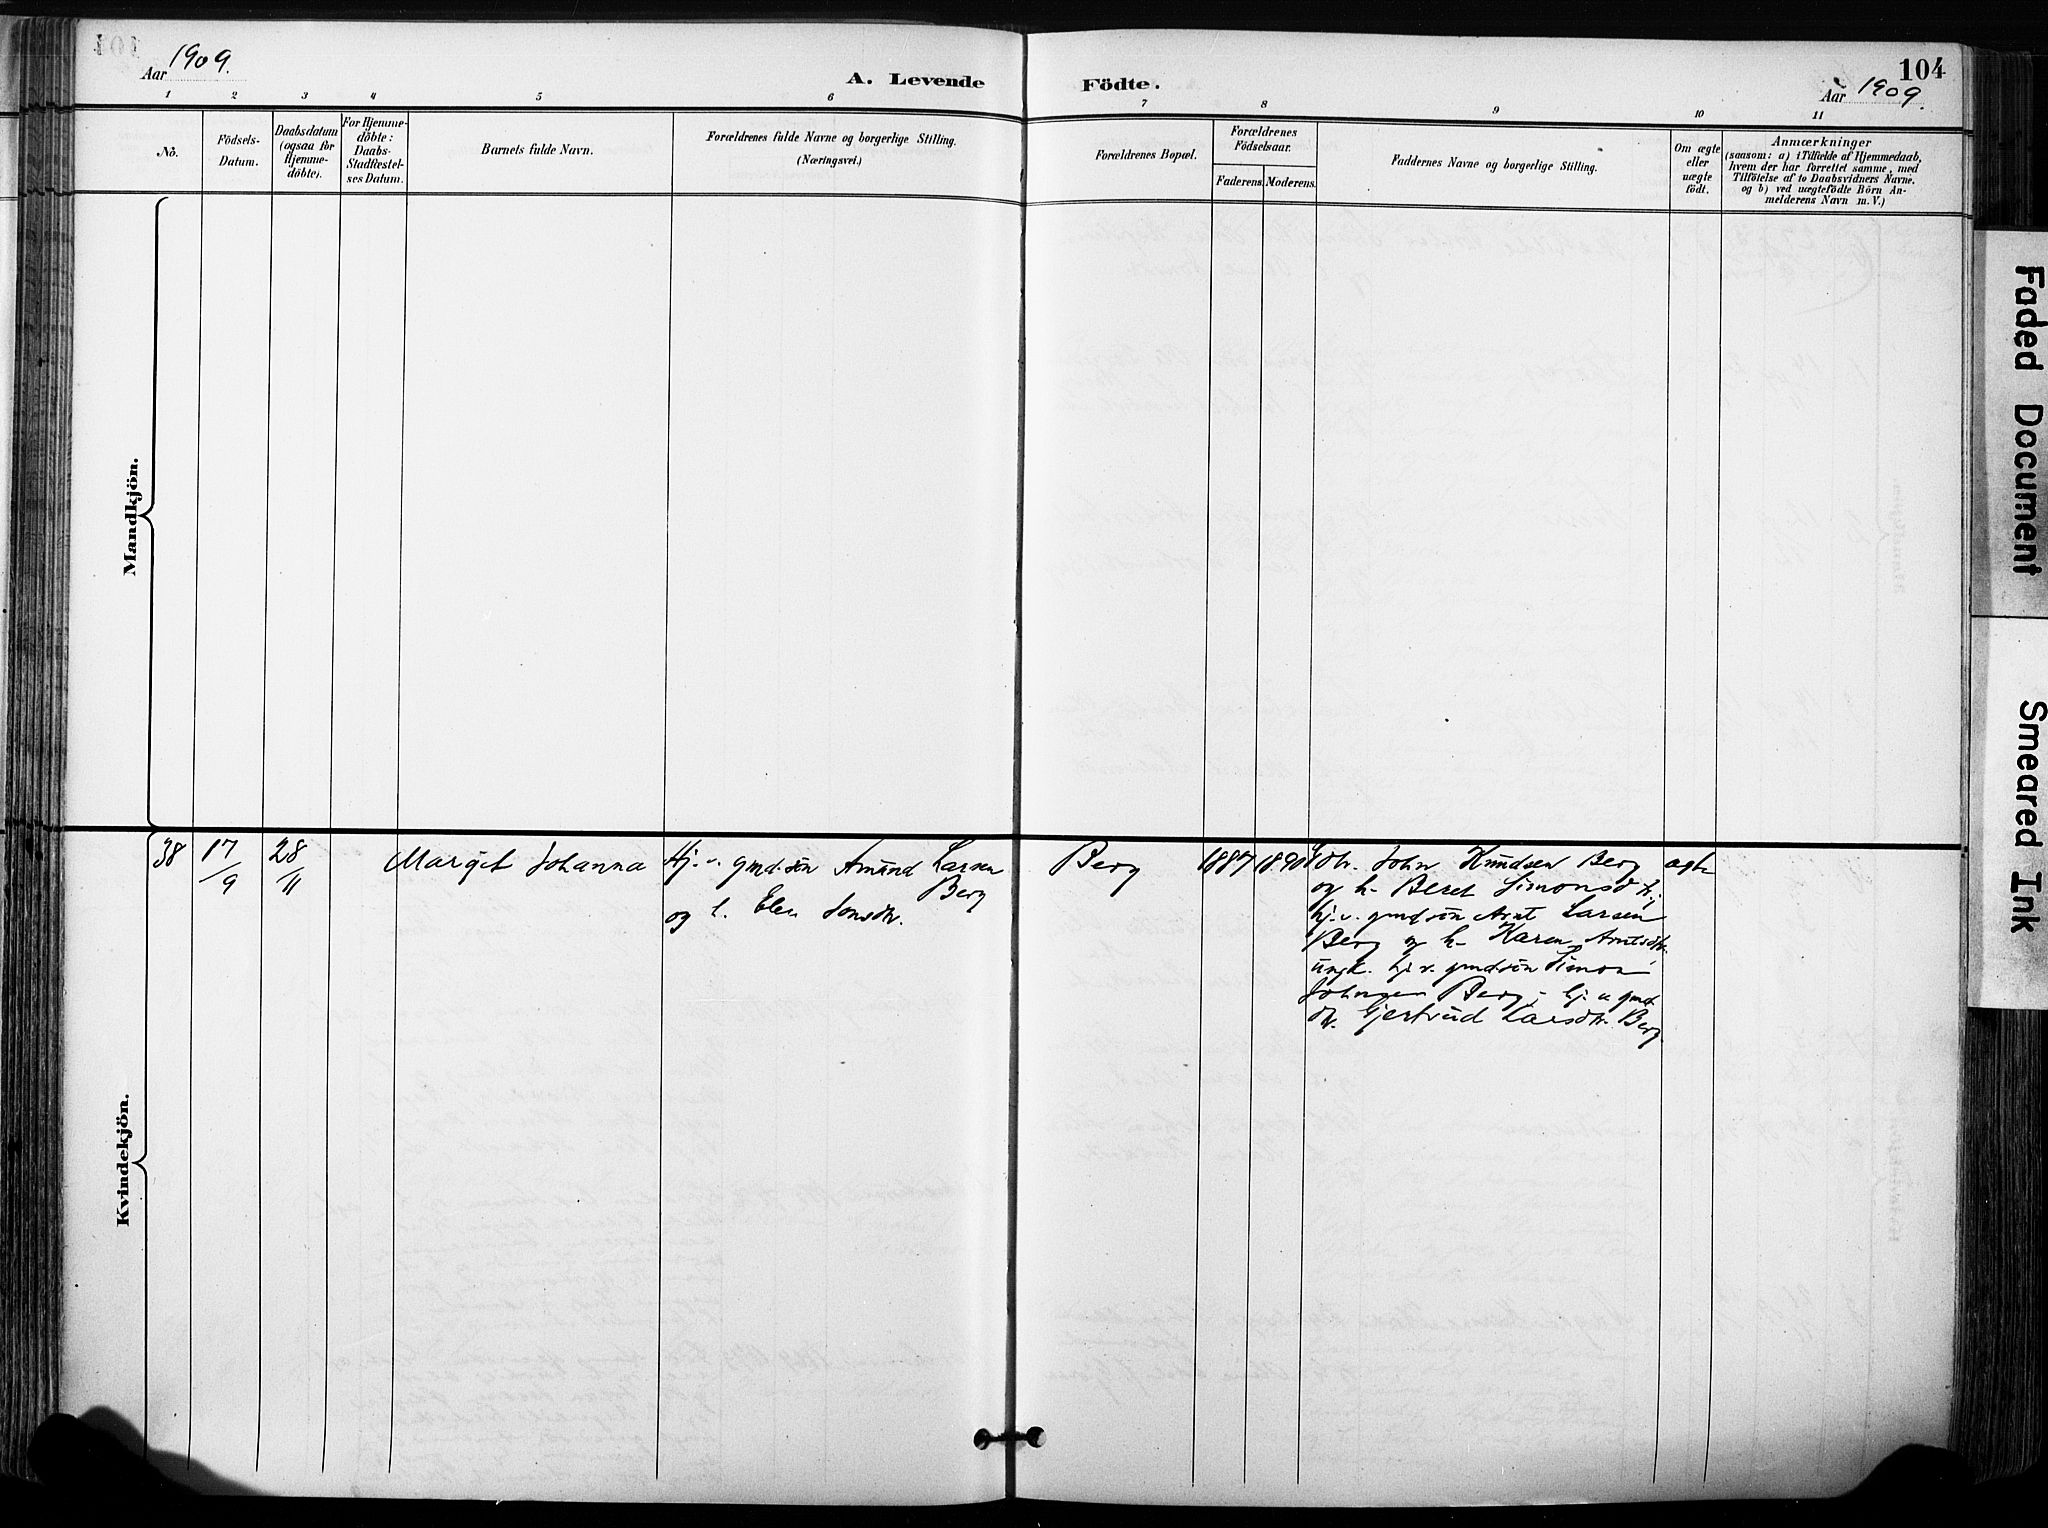 104
Aar 1909.
A. Levende Födte.
Aar 1909.
1 2 3 4 5 6 7 8 9 10 11
No.
Födsels-
Datum.
Daabsdatum
(ogsaa for
Hjemme-
döbte).
For Hjemme-
döbte:
Daabs-
Stadfæstel-
ses Datum.
Barnets fulde Navn.
Forældrenes fulde Navne og borgerlige Stilling.
(Næringsvei.)
Forældrenes Bopæl.
Forældrenes
Födselsaar.
Faderens.
Moderens.
Faddernes Navne og borgerlige Stilling.
Om ægte
eller
uægte
födt.
Anmærkninger
(saasom: a) i Tilfælde af Hjemmedaab,
hvem der har forrettet samme, med
Tilföielse af to Daabsvidners Navne,
og b) ved uægtefödte Börn An-
melderens Navn m. V.)
Mandkjön.
Kvindekjön.
38
17/9
28/11
Margit Johanna
Hj. v. gmd.sön Amund Larsen
Berg
og h. Elen Jonsdtr.
Berg
1887
1890
John Knudsen Berg
og h. Beret Simonsdtr.,
hj. v. gmd.sön Arnt Larsen
Berg og h. Karen Arntsdtr.
ungk. hj. v. gmd.sön Simon
Johnsen Berg, hj. v. gmd.
dtr. Gjertrud Larsdtr. Berg
ægte
Faded Document
Smeared Ink